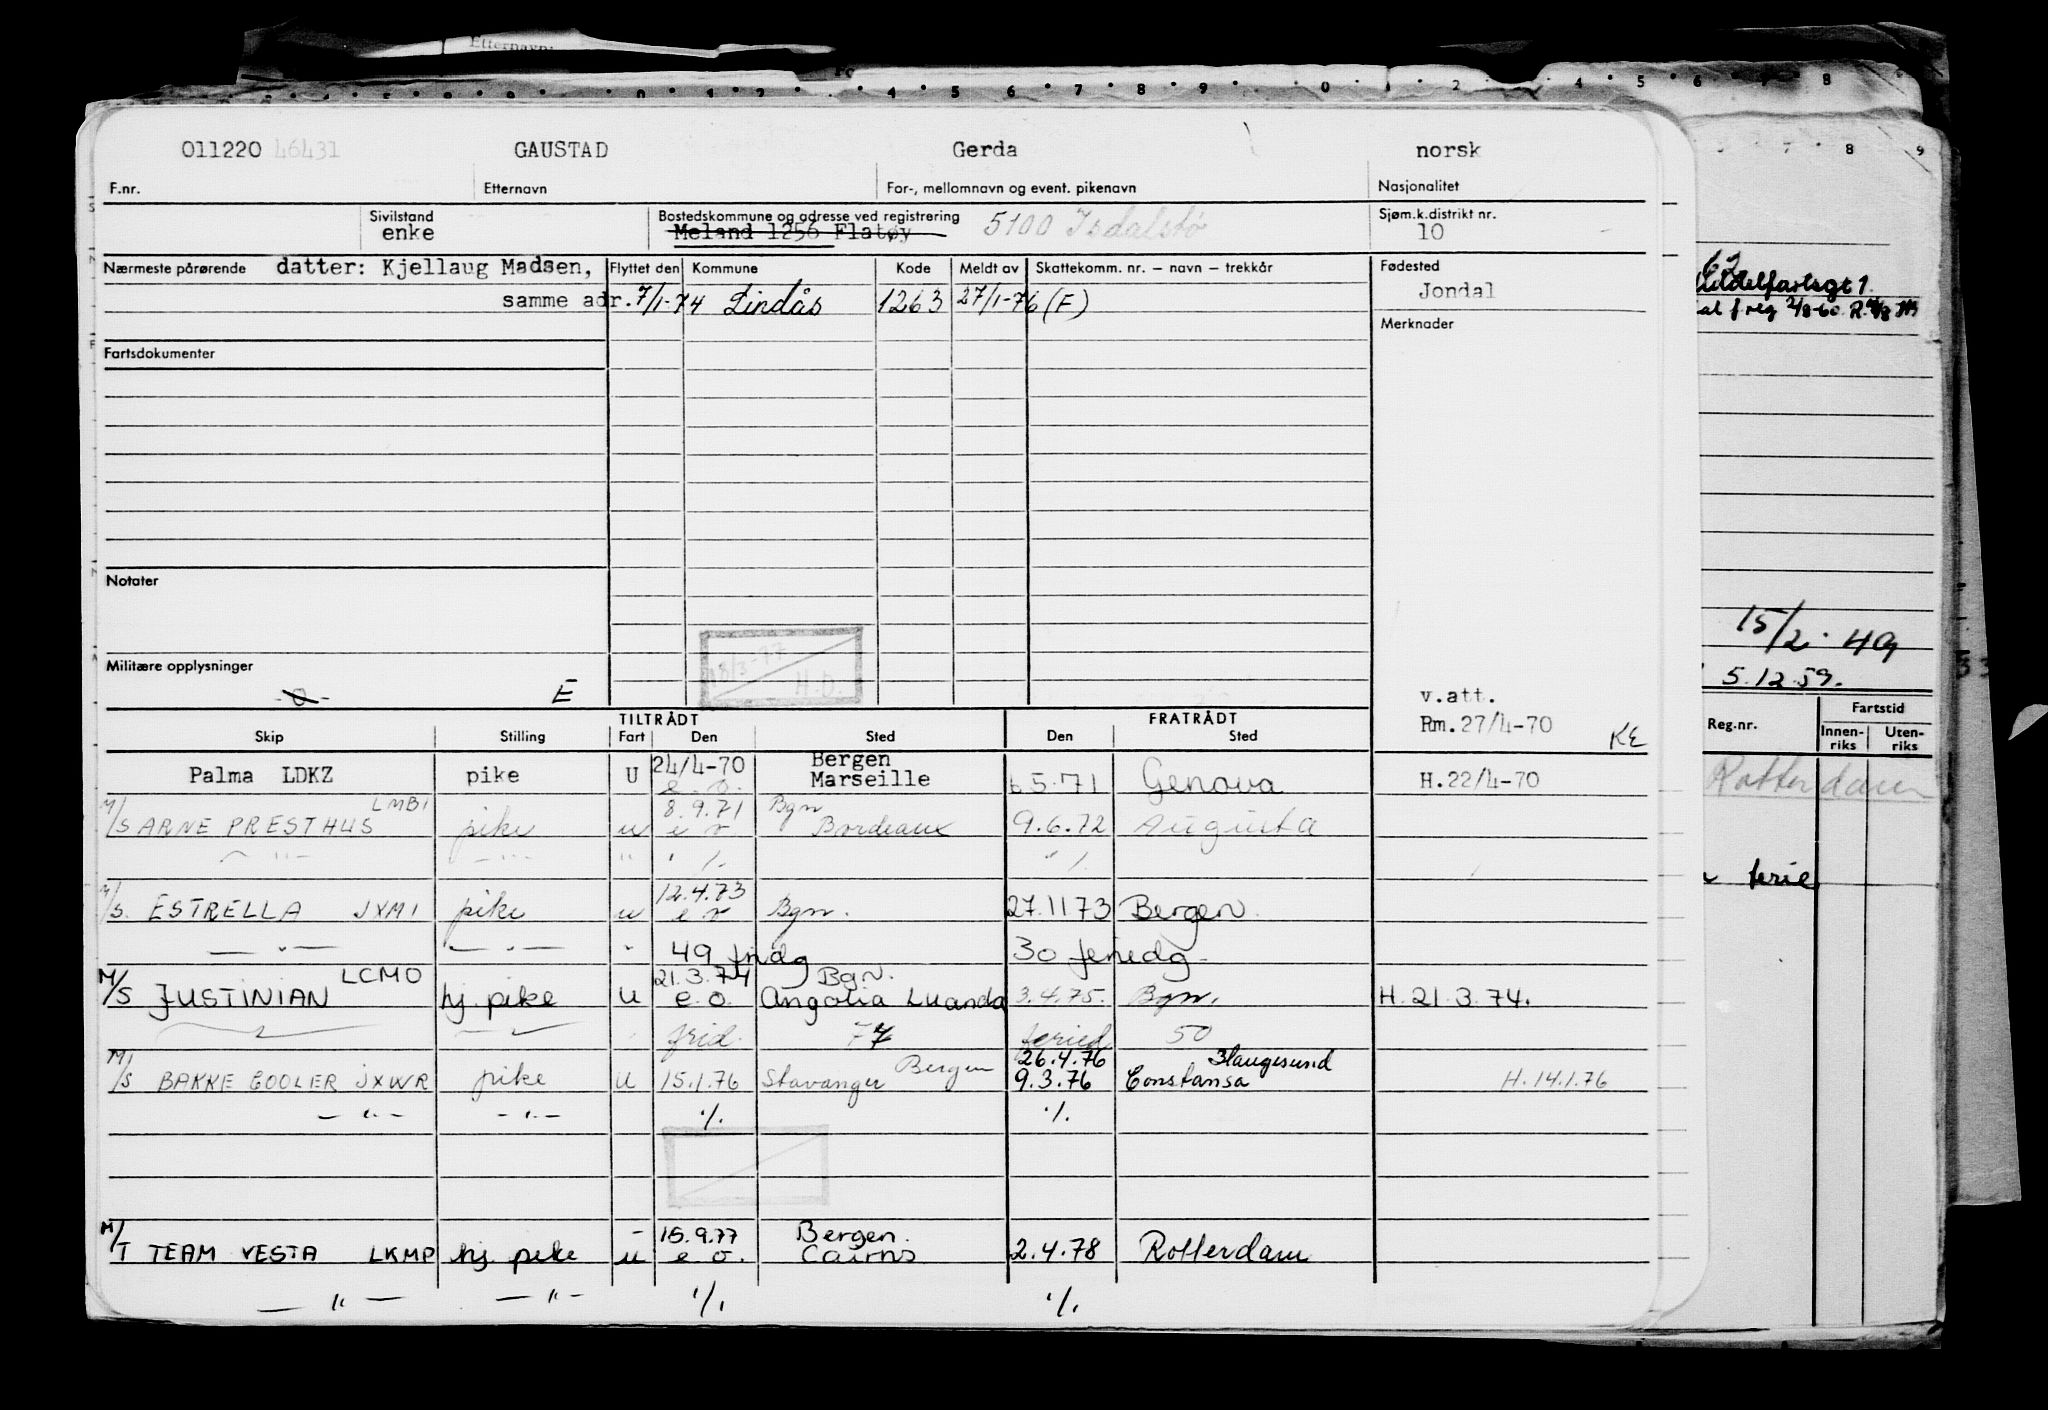 Etternavn:
011220 46431 GAUSTAD Gerda norsk
F.nr. Etternavn For-, mellomnavn og event. pikenavn Nasjonalitet
Sivilstand Bostedskommune og adresse ved registrering Sjøm.k.distrikt nr.
enke Meland 1256 Flatøy 5100 Isdalstø 10
Nærmeste pårørende datter: Kjellaug Madsen, Flyttet den Kommune Kode Meldt av Skattekomm. nr. – navn – trekkår Fødested
Jondal
samme adr. 7/1-74 Lindås 1263 27/1-76 (F)
Merknader
Fartsdokumenter
Notater
18/3-77
H.D.
Militære opplysninger
-a- E
v.att.
Rm.27/4-70 KE
TILTRÅDT FRATRÅDT
Skip Stilling Fart Den Sted Den Sted
Palma LDKZ pike U 24/4-70 e.o. Bergen Marseille 6 5.71 Genova H.22/4-70
M/S ARNE PRESTHUS LMBI pike u 8.9.71 e o Bgn Bordeaux 9.6.72 Augusta
— " — — " — " ./. ./.
M/S. ESTRELLA JXMI pike u 12.4.73 e o Bgn. 27.11 73 Bergen
— " — — " — " 49 fridg 30 feriedg
M/S JUSTINIAN LCMO hj. pike U 21.3.74 e.o. Bgn. Angolia Luanda 3.4.75. Bgn. H. 21.3.74.
frid. 77 feried 50
M/S BAKKE COOLER JXWR pike U 15.1.76 Stavanger Bergen 26.4.76 Haugesund
9.3.76 Constansa H.14.1.76
— " — — " — ./. ./.
M/T TEAM VESTA LKMP hj. pike u 15.9.77 e.o. Bergen. Cairns 2.4.78 Rotterdam
— " — — " — ./. ./.
Middelfartsgt 1.
15/2.49
5.12.59.
Reg.nr. Fartstid
Innen-riks Uten-riks
Rotterdam
ferie